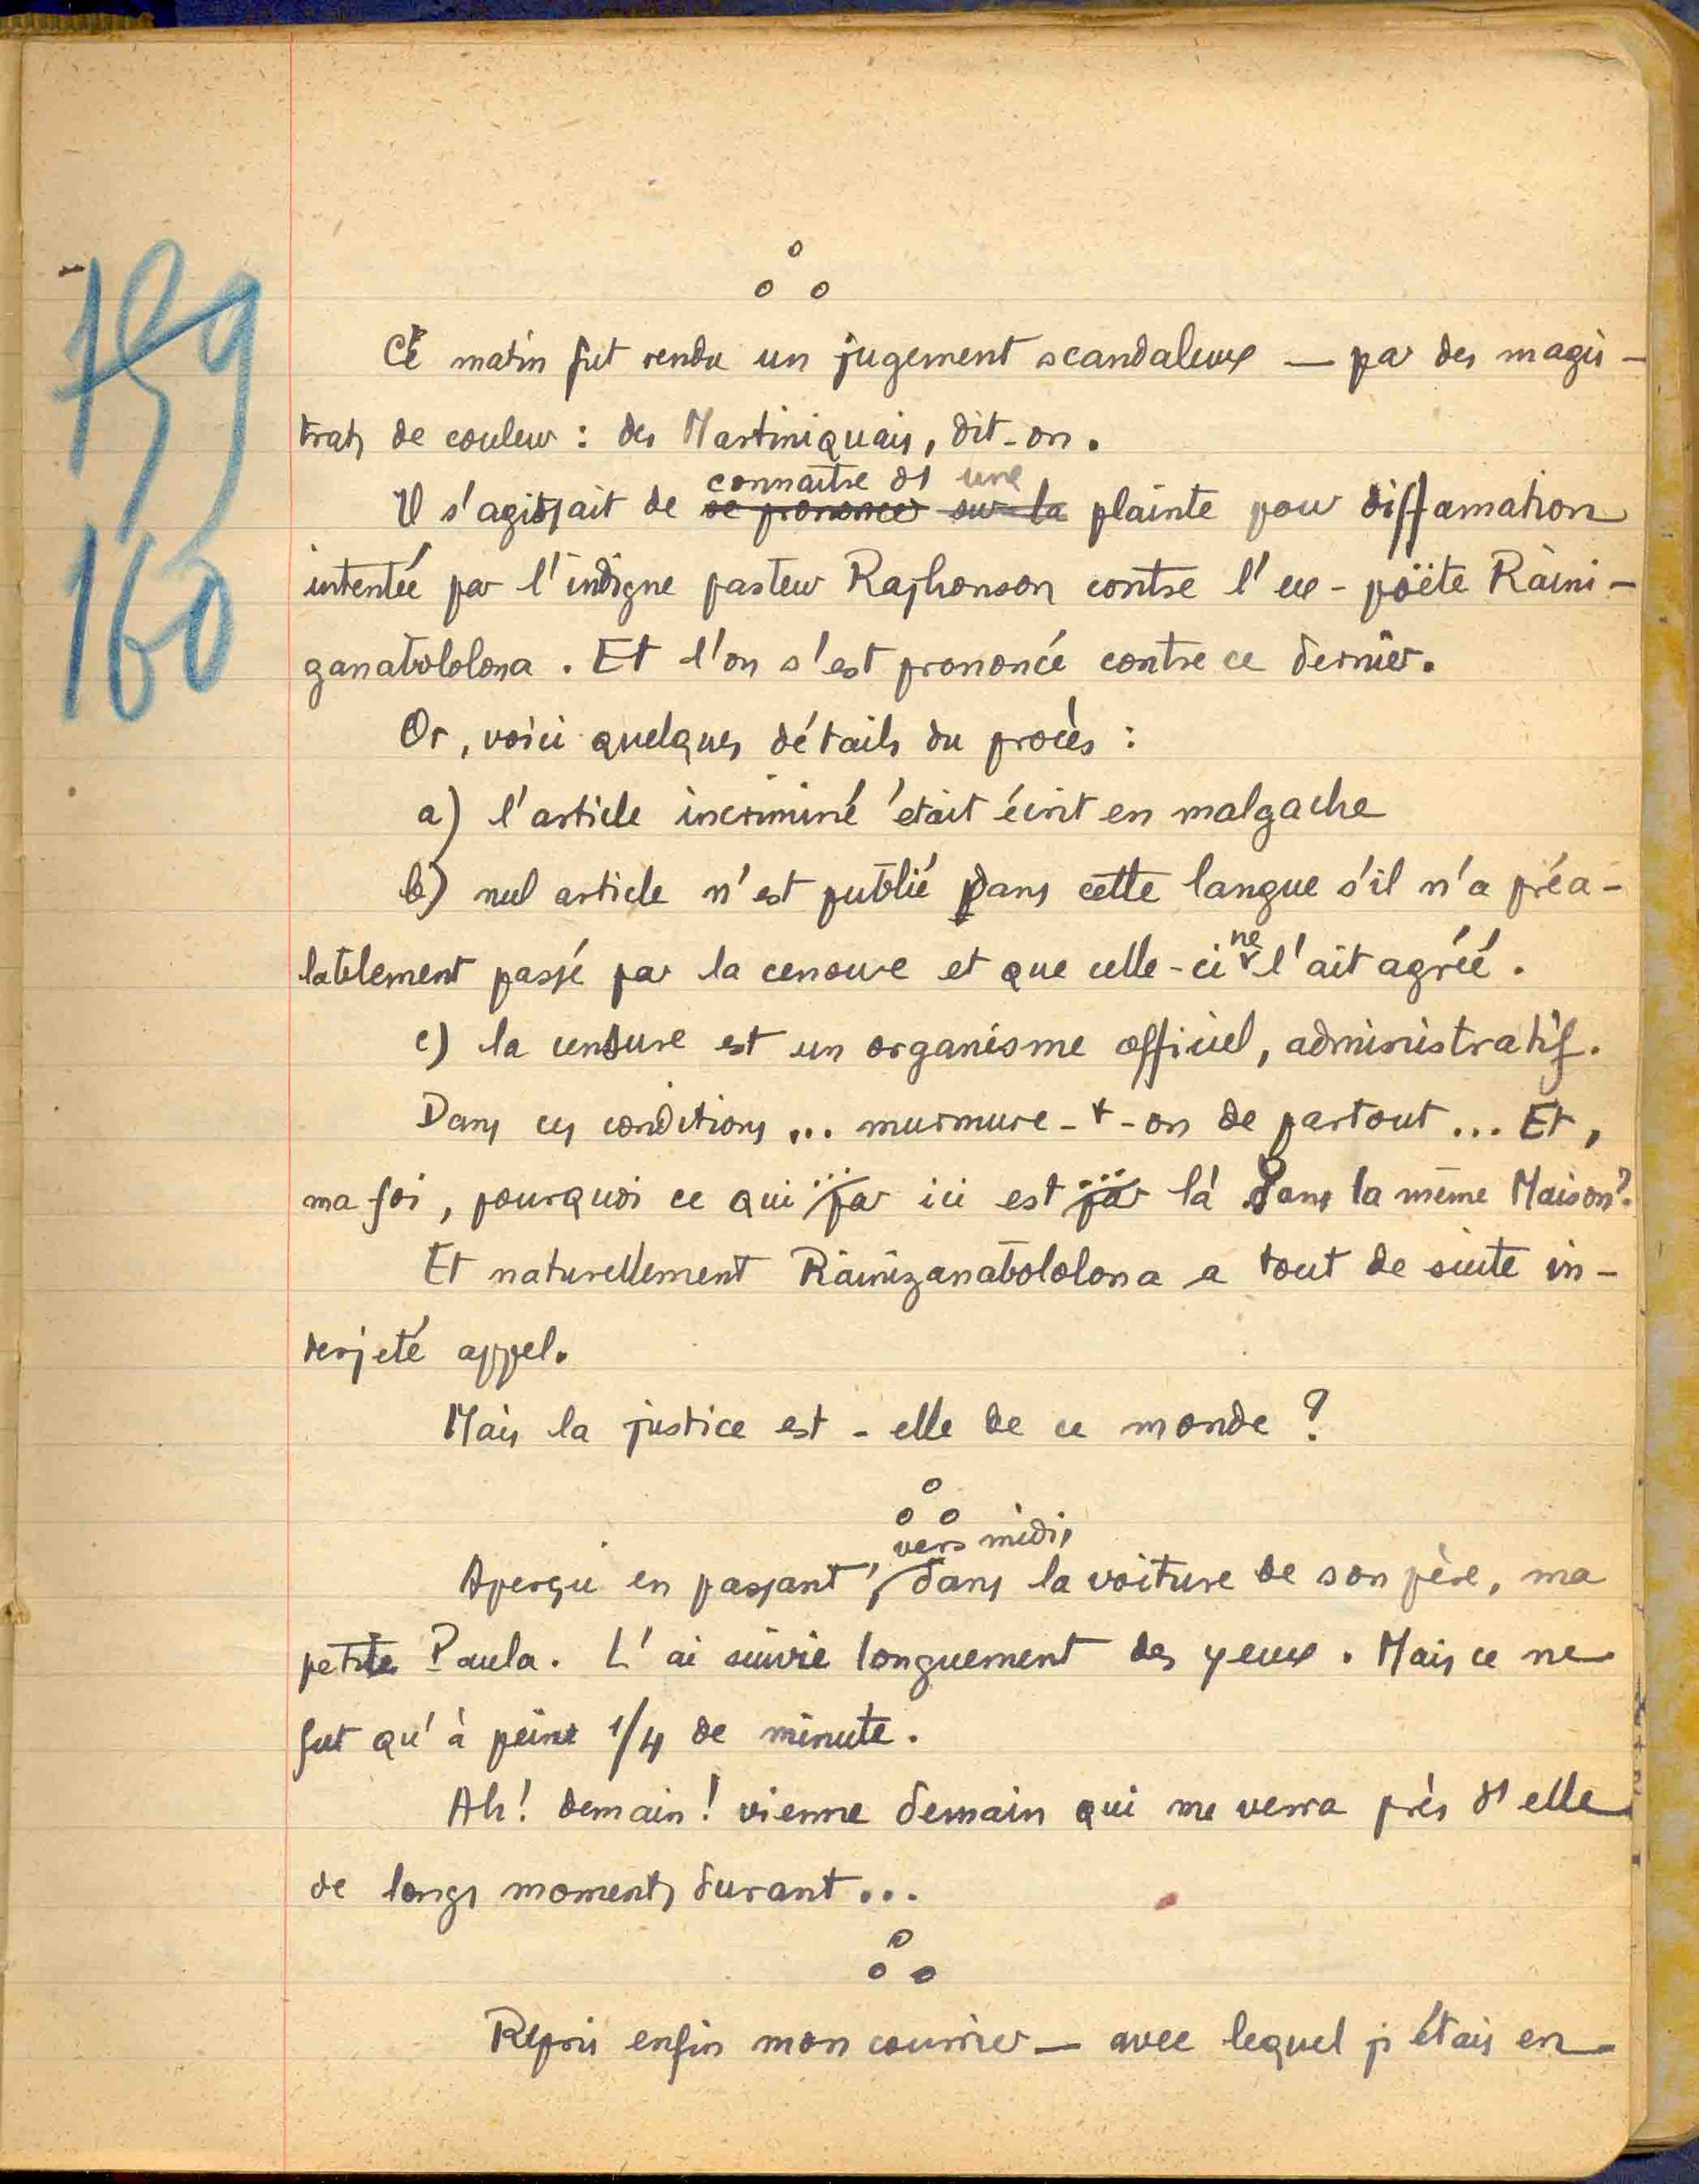 159
160
Ce matin fut rendu un jugement scandaleux — par des magis-
trats de couleur : des Martiniquais, dit-on.
connaître d' une
Il s'agissait de se prononcer sur la plainte pour diffamation
intentée par l'indigne pasteur Rajhonson contre l'ex-poëte Raini-
zanabololona. Et l'on s'est prononcé contre ce dernier.
Or, voici quelques détails du procès :
a) l'article incriminé était écrit en malgache
b) nul article n'est publié dans cette langue s'il n'a préa-
ne
lablement passé par la censure et que celle-ci l'ait agréé.
c) la censure est un organisme officiel, administratif.
Dans ces conditions ... murmure-t-on de partout ... Et,
ma foi, pourquoi ce qui ici est là dans la même Maison ?
Et naturellement Rainizanabololona a tout de suite in-
terjeté appel.
Mais la justice est-elle de ce monde ?
vers midi,
Aperçu en passant, dans la voiture de son père, ma
petite Paula. L'ai suivie longuement des yeux. Mais ce ne
fut qu'à peine 1/4 de minute.
Ah ! demain ! vienne demain qui me verra près d'elle
de longs moments durant ...
Repris enfin mon courrier — avec lequel j'étais en